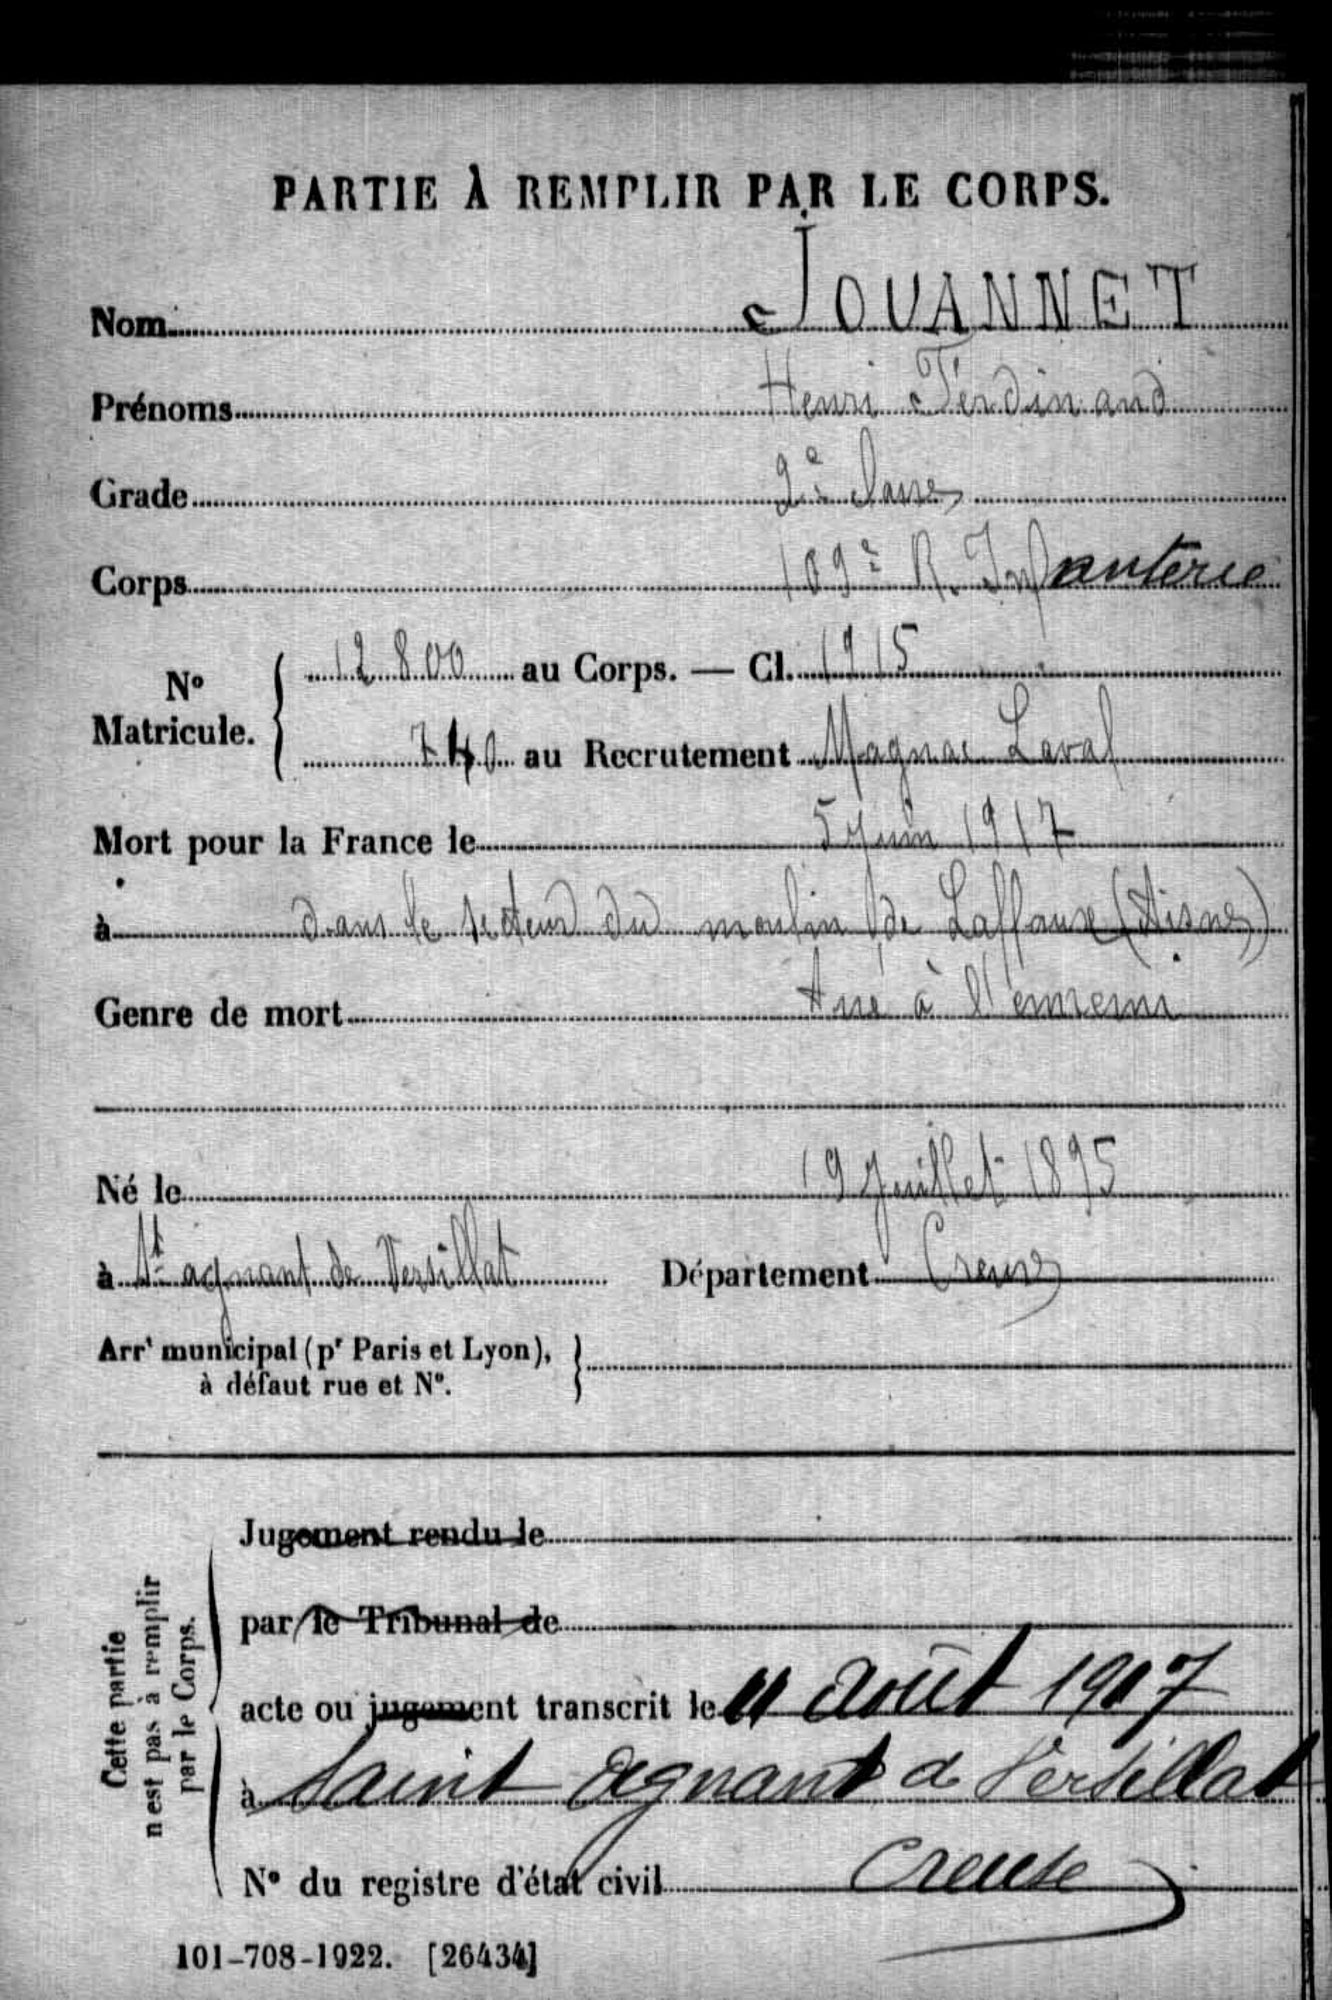 PARTIE À REMPLIR PAR LE CORPS.
Nom JOUANNET
Prénoms Henri Ferdinand
Grade 2e Classe
Corps 109e R. Infanterie
No Matricule. 12800 au Corps. — Cl. 1915
740 au Recrutement Magnac Laval
Mort pour la France le 5 Juin 1917
à dans le secteur du moulin de Laffaux (Aisne)
Genre de mort tué à l'ennemi
Né le 19 Juillet 1895
à St agnant de Versillat Département Creuse
Arrt municipal (pr Paris et Lyon),
à défaut rue et No.
Jugement rendu le
par le Tribunal de
acte ou jugement transcrit le 11 août 1917
à Saint Agnant d Versillat
Creuse
No du registre d'état civil
Cette partie
n'est pas à remplir
par le Corps.
101-708-1922. [26434]